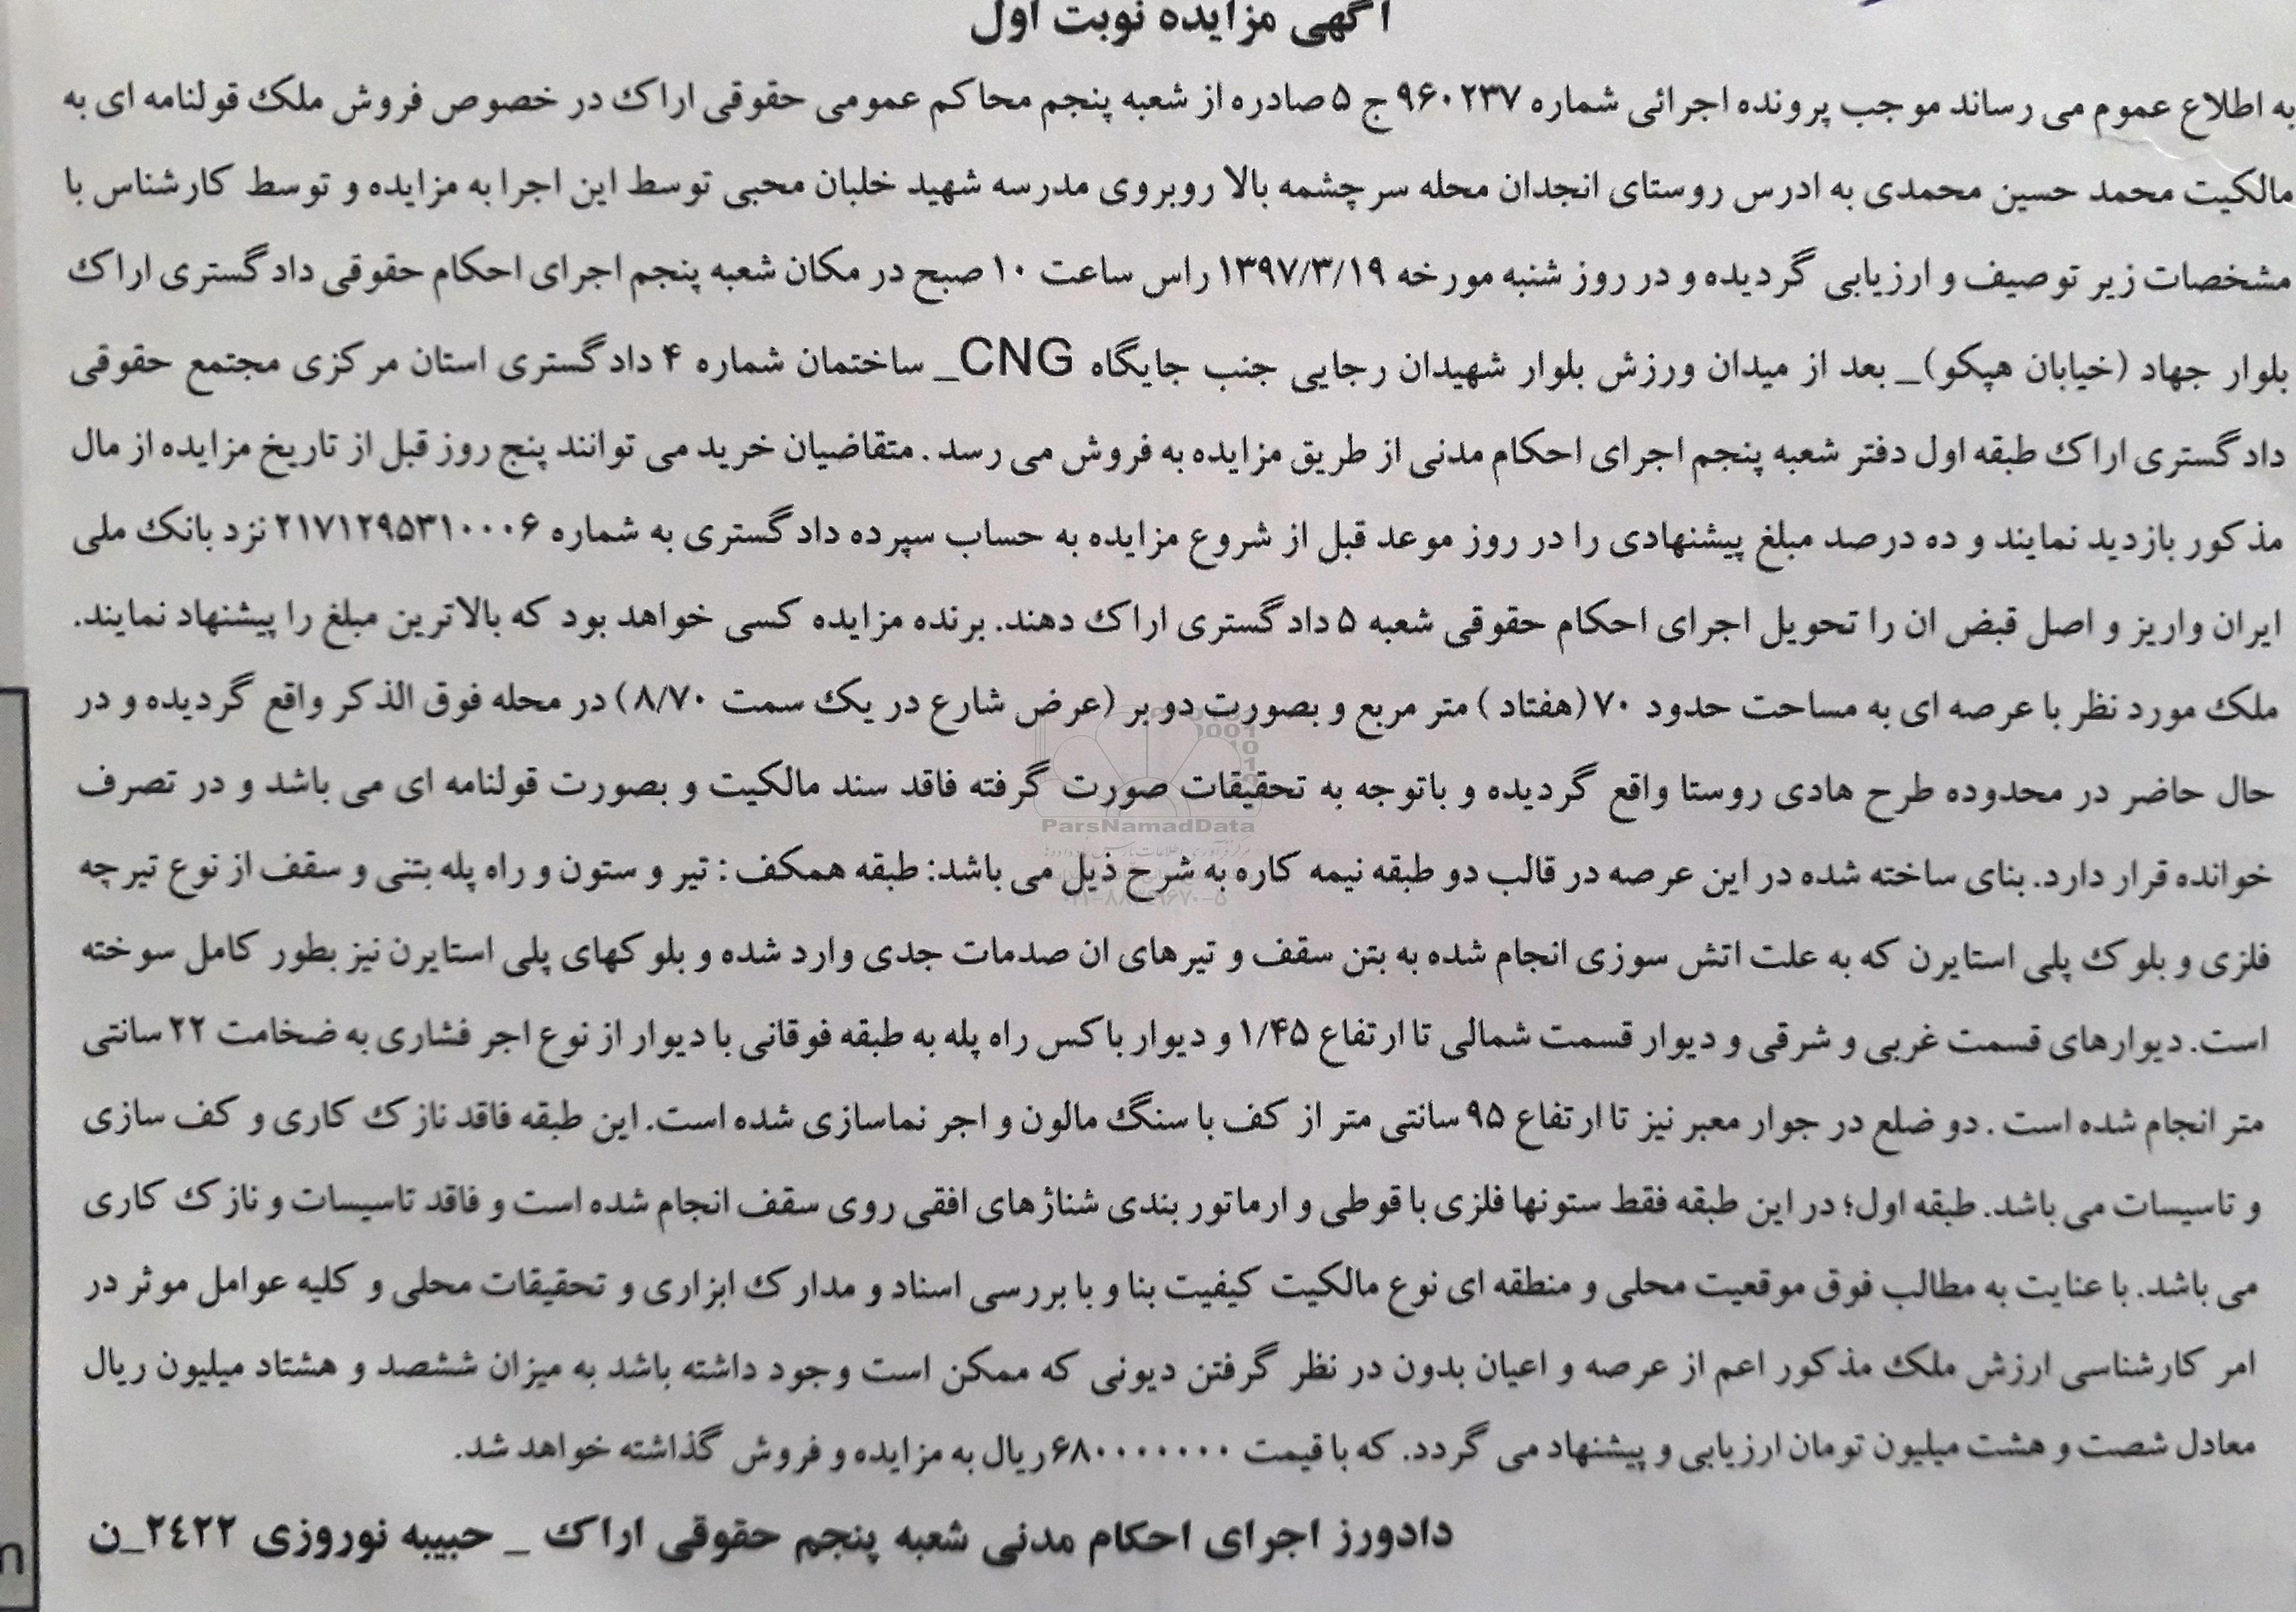 آگهی مزایده نوبت اول
به اطلاع عموم می رساند موجب پرونده اجرائی شماره ۹۶۰۲۳۷ ج ۵ صادره از شعبه پنجم محاکم عمومی حقوقی اراک در خصوص فروش ملک قولنامه ای به
مالکیت محمد حسین محمدی به ادرس روستای انجدان محله سرچشمه بالا روبروی مدرسه شهید خلبان محبی توسط این اجرا به مزایده و توسط کارشناس با
مشخصات زیر توصیف و ارزیابی گردیده و در روز شنبه مورخه ۱۳۹۷/۳/۱۹ راس ساعت ۱۰ صبح در مکان شعبه پنجم اجرای احکام حقوقی دادگستری اراک
بلوار جهاد (خیابان هپکو)_ بعد از میدان ورزش بلوار شهیدان رجایی جنب جایگاه CNG_ ساختمان شماره ۴ دادگستری استان مرکزی مجتمع حقوقی
دادگستری اراک طبقه اول دفتر شعبه پنجم اجرای احکام مدنی از طریق مزایده به فروش می رسد . متقاضیان خرید می توانند پنج روز قبل از تاریخ مزایده از مال
مذکور بازدید نمایند و ده درصد مبلغ پیشنهادی را در روز موعد قبل از شروع مزایده به حساب سپرده دادگستری به شماره ۲۱۷۱۲۹۵۳۱۰۰۰۶ نزد بانک ملی
ایران واریز و اصل قبض ان را تحویل اجرای احکام حقوقی شعبه ۵ دادگستری اراک دهند. برنده مزایده کسی خواهد بود که بالاترین مبلغ را پیشنهاد نمایند.
ملک مورد نظر با عرصه ای به مساحت حدود ۷۰ (هفتاد ) متر مربع و بصورت دو بر (عرض شارع در یک سمت ۸/۷۰) در محله فوق الذکر واقع گردیده و در
حال حاضر در محدوده طرح هادی روستا واقع گردیده و باتوجه به تحقیقات صورت گرفته فاقد سند مالکیت و بصورت قولنامه ای می باشد و در تصرف
خوانده قرار دارد. بنای ساخته شده در این عرصه در قالب دو طبقه نیمه کاره به شرح ذیل می باشد: طبقه همکف : تیر و ستون و راه پله بتنی و سقف از نوع تیرچه
فلزی و بلوک پلی استایرن که به علت اتش سوزی انجام شده به بتن سقف و تیرهای ان صدمات جدی وارد شده و بلوکهای پلی استایرن نیز بطور کامل سوخته
است. دیوارهای قسمت غربی و شرقی و دیوار قسمت شمالی تا ارتفاع ۱/۴۵ و دیوار باکس راه پله به طبقه فوقانی با دیوار از نوع اجر فشاری به ضخامت ۲۲ سانتی
متر انجام شده است . دو ضلع در جوار معبر نیز تا ارتفاع ۹۵ سانتی متر از کف با سنگ مالون و اجر نماسازی شده است. این طبقه فاقد نازک کاری و کف سازی
و تاسیسات می باشد. طبقه اول؛ در این طبقه فقط ستونها فلزی با قوطی و ارماتور بندی شناژهای افقی روی سقف انجام شده است و فاقد تاسیسات و نازک کاری
می باشد. با عنایت به مطالب فوق موقعیت محلی و منطقه ای نوع مالکیت کیفیت بنا و با بررسی اسناد و مدارک ابزاری و تحقیقات محلی و کلیه عوامل موثر در
امر کارشناسی ارزش ملک مذکور اعم از عرصه و اعیان بدون در نظر گرفتن دیونی که ممکن است وجود داشته باشد به میزان ششصد و هشتاد میلیون ریال
معادل شصت و هشت میلیون تومان ارزیابی و پیشنهاد می گردد. که با قیمت ۶۸۰۰۰۰۰۰۰ ریال به مزایده و فروش گذاشته خواهد شد.
دادورز اجرای احکام مدنی شعبه پنجم حقوقی اراک _ حبیبه نوروزی ۲٤۲۲_ن
ParsNamadData